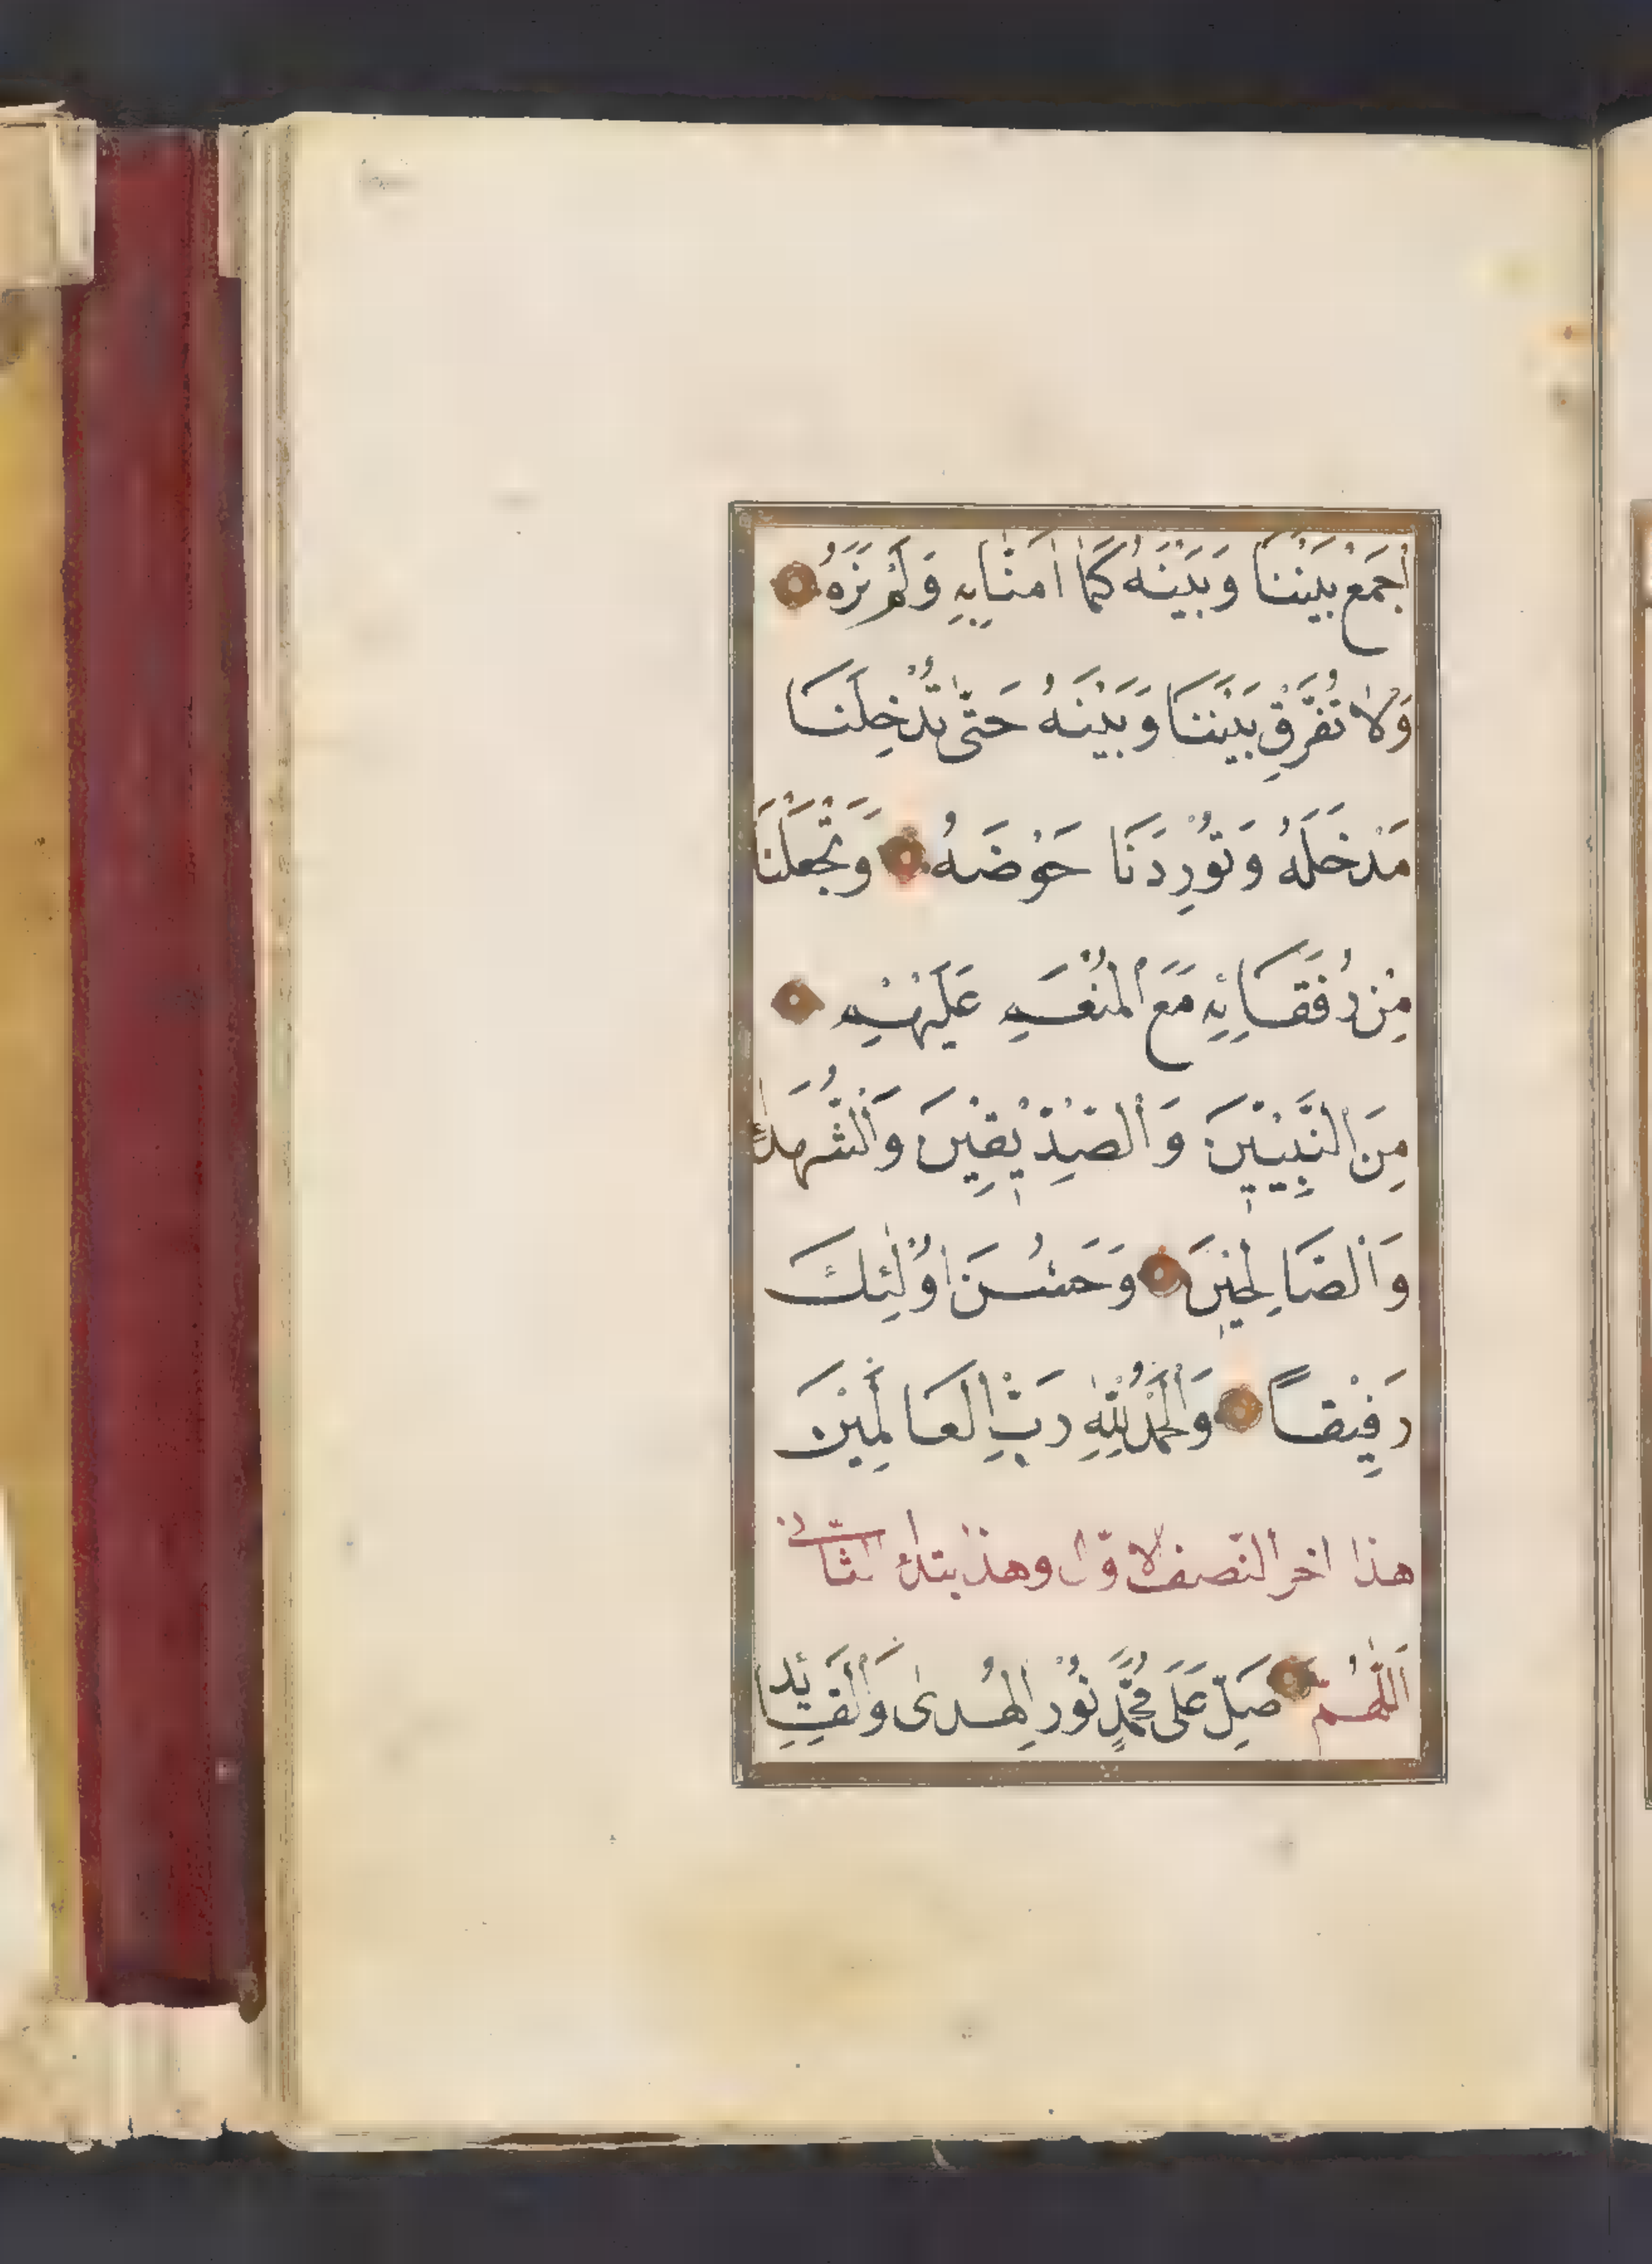 اجْمَعْ بَيْنَنَا وَبَيْنَهُ كَمَا اٰمَنَّا بِهِ وَلَمْ نَرَهُ
وَلَا تُفَرِّقْ بَيْنَنَا وَبَيْنَهُ حَتّٰى تُدْخِلَنَا
مَدْخَلَهُ وَتُوْرِدَنَا حَوْضَهُ وَتَجْعَلَنَا
مِنْ رُفَقَائِهِ مَعَ الْمُنْعَمِ عَلَيْهِمْ
مِنَ النَّبِيّٖيْنَ وَالصِّدّٖيْقِيْنَ وَالشُّهَدَاءِ
وَالصَّالِحٖيْنَ وَحَسُنَ اُوْلٰئِكَ
رَفِيْقاً وَالْحَمْدُ لِلّٰهِ رَبِّ الْعَالَمِيْنَ
هذا اخر النّصف الاوّل وهذا ابتداء الثّانى
اَللّٰهُمَّ صَلِّ عَلَى مُحَمَّدٍ نُوْرِ الْهُدىٰ وَالْقَائِدِ